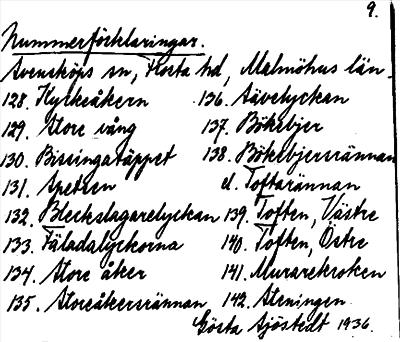 9.
Nummerförklaringar.
Svensköps sn, Frosta hd, Malmöhus län.
128. Kyrkeåkern
129. Store vång
130. Bissingatäppet
131. Spetsen
132. Bleckslagarelyckan
133. Fäladalyckorna
134. Store åker
135. Storeåkersrännan
136. Sävelyckan
137. Bökebjer
138. Bökebjersrännan
el. Toftarännan
139. Toften, Västre
140. Toften, Östre
141. Murarekroken
142. Steningen
Gösta Sjöstedt 1936.